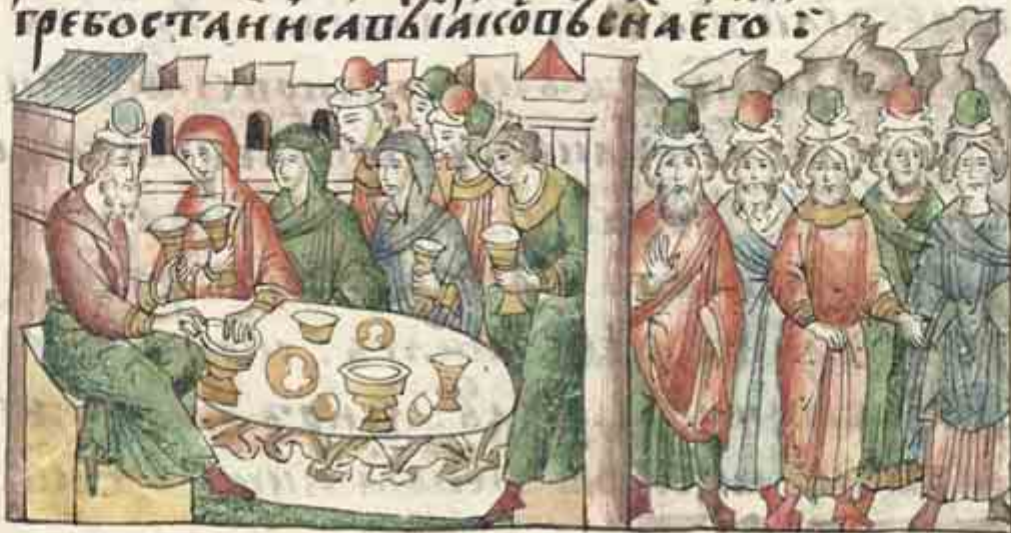 гребоста иисавь іаковь сна его :~